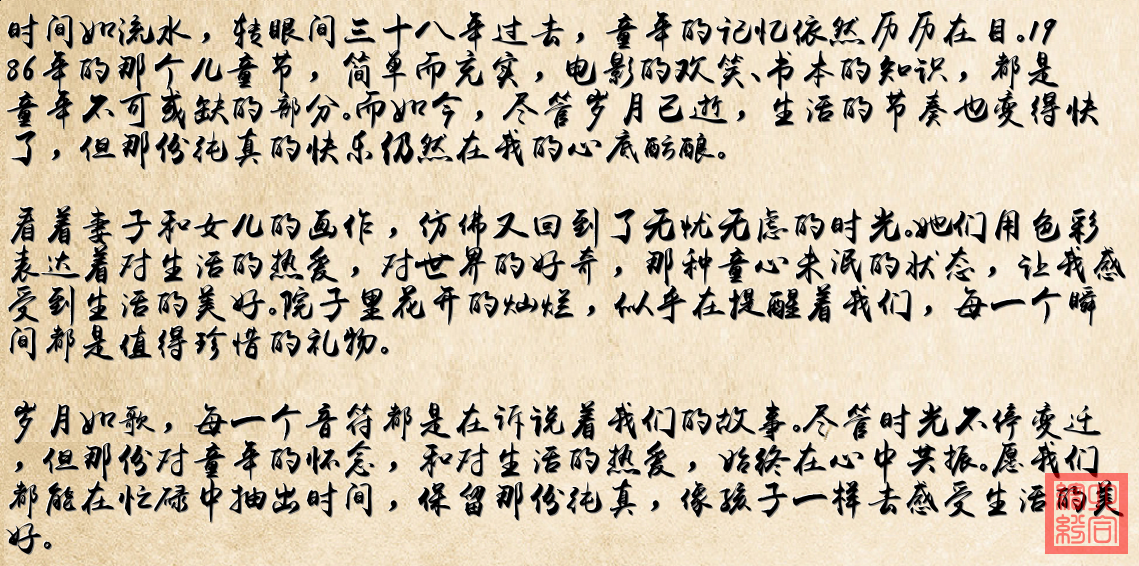 时间如流水，转眼间三十八年过去，童年的记忆依然历历在目。19
86年的那个儿童节，简单而充实，电影的欢笑、书本的知识，都是
童年不可或缺的部分。而如今，尽管岁月已逝，生活的节奏也变得快
了，但那份纯真的快乐仍然在我的心底酝酿。
看着妻子和女儿的画作，仿佛又回到了无忧无虑的时光。她们用色彩
表达着对生活的热爱，对世界的好奇，那种童心未泯的状态，让我感
受到生活的美好。院子里花开的灿烂，似乎在提醒着我们，每一个瞬
间都是值得珍惜的礼物。
岁月如歌，每一个音符都是在诉说着我们的故事。尽管时光不停变迁
，但那份对童年的怀念，和对生活的热爱，始终在心中共振。愿我们
都能在忙碌中抽出时间，保留那份纯真，像孩子一样去感受生活的美
好。